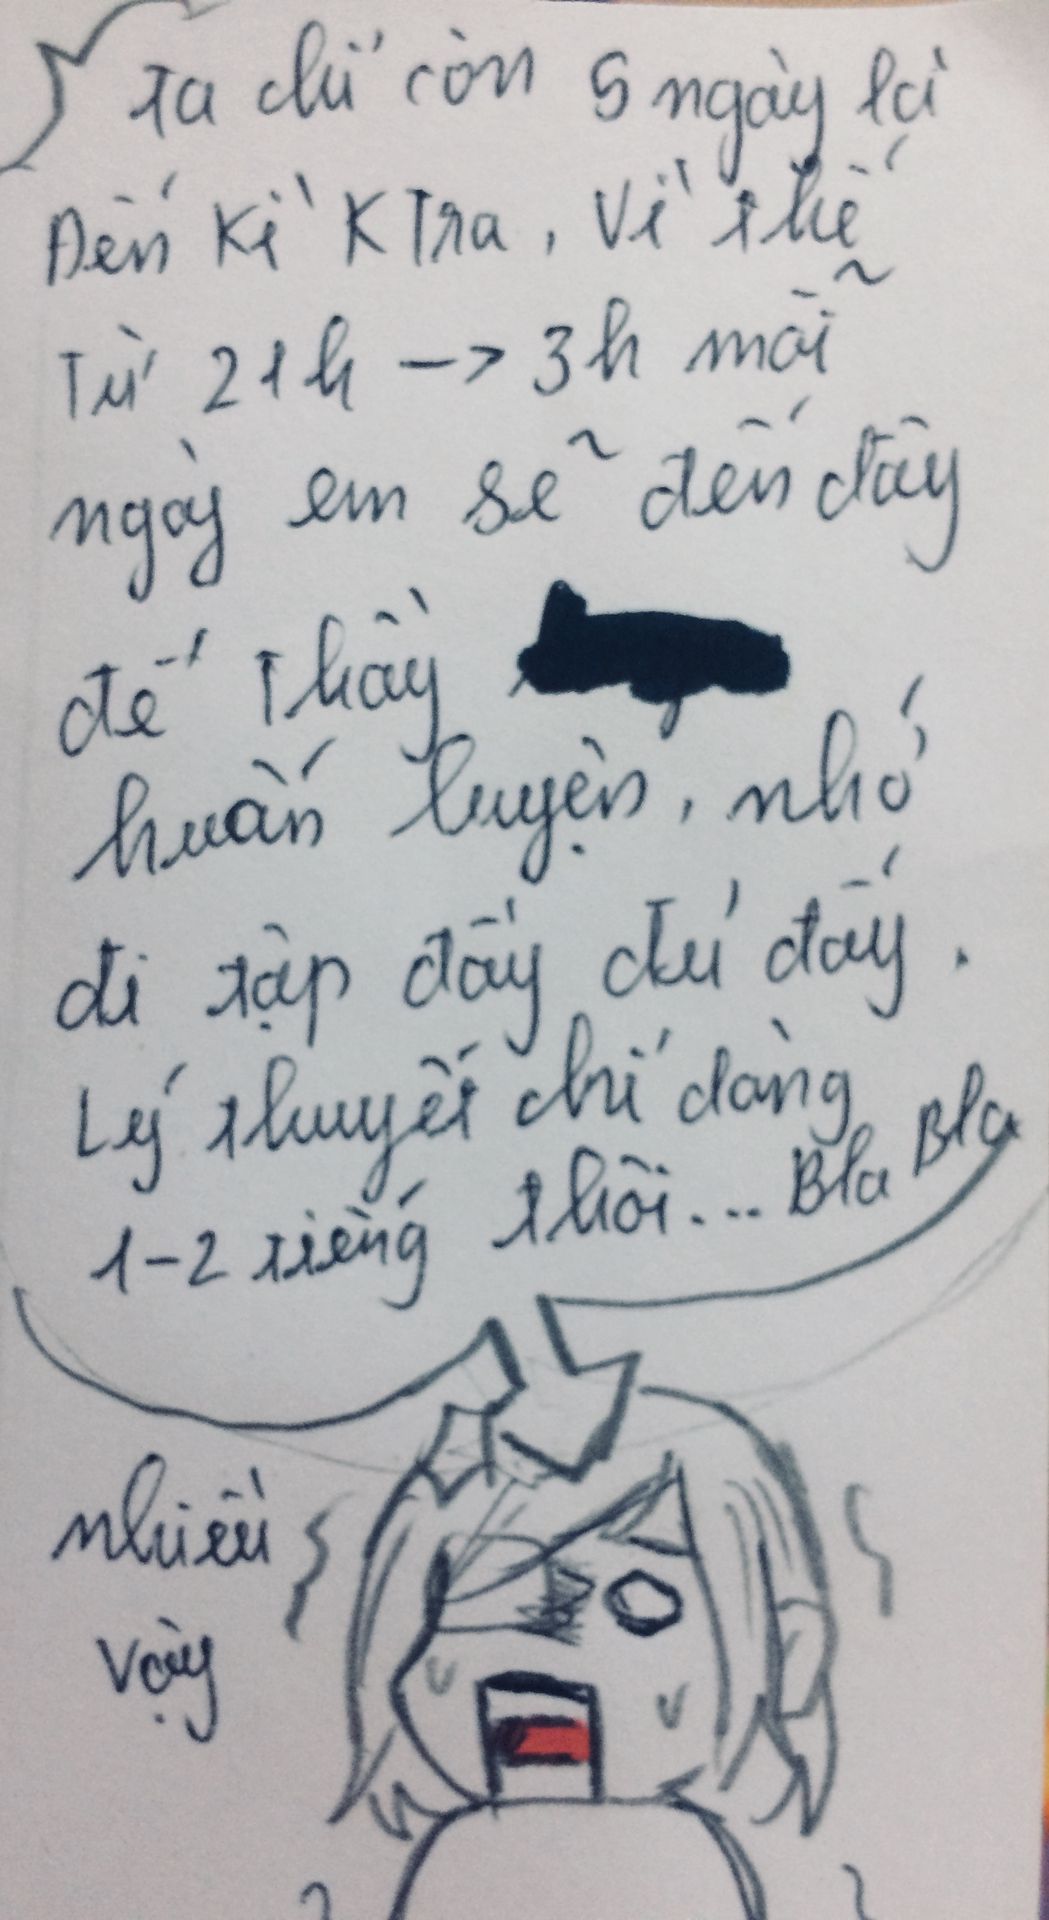 Ta chỉ còn 5 ngày là
Đến Kì KTra, Vì thế
Từ 21h -> 3h mỗi
ngày em sẽ đến đây
để Thầy
huấn luyện, nhớ
đi tập đầy đủ đấy.
Lý thuyết chỉ dàng
1-2 tiếng thôi... Bla Bla
nhiều
vậy